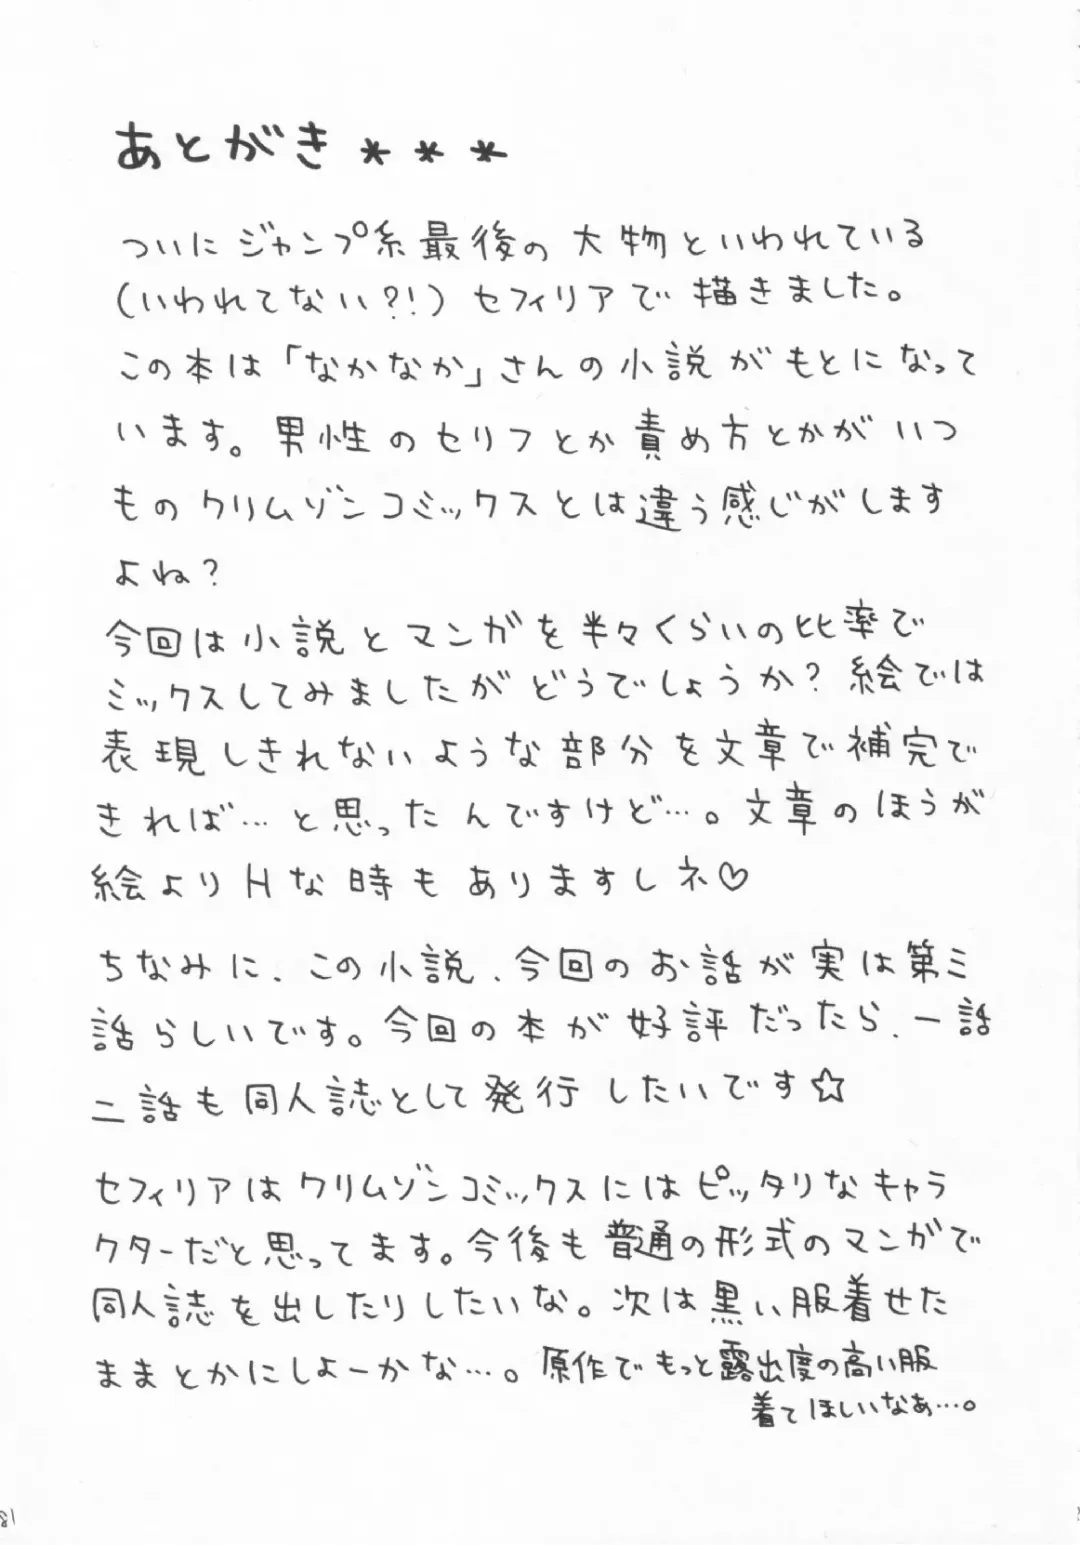 あとがき＊＊＊
ついにジャンプ系最後の大物といわれている
（いわれてない？！）セフィリアで描きました。
この本は「なかなか」さんの小説がもとになって
います。男性のセリフとか責め方とかがいつ
ものクリムゾンコミックスとは違う感じがします
よね？
今回は小説とマンガを半々くらいの比率で
ミックスしてみましたがどうでしょうか？絵では
表現しきれないような部分を文章で補完で
きれば…と思ったんですけど…。文章のほうが
絵よりHな時もありますしネ♡
ちなみに、この小説、今回のお話が実は第三
話らしいです。今回の本が好評だったら、一話
二話も同人誌として発行したいです☆
セフィリアはクリムゾンコミックスにはピッタリなキャラ
クターだと思ってます。今後も普通の形式のマンガで
同人誌を出したりしたいな。次は黒い服着せた
ままとかにしよーかな…。原作でもっと露出度の高い服
着てほしいなあ…。